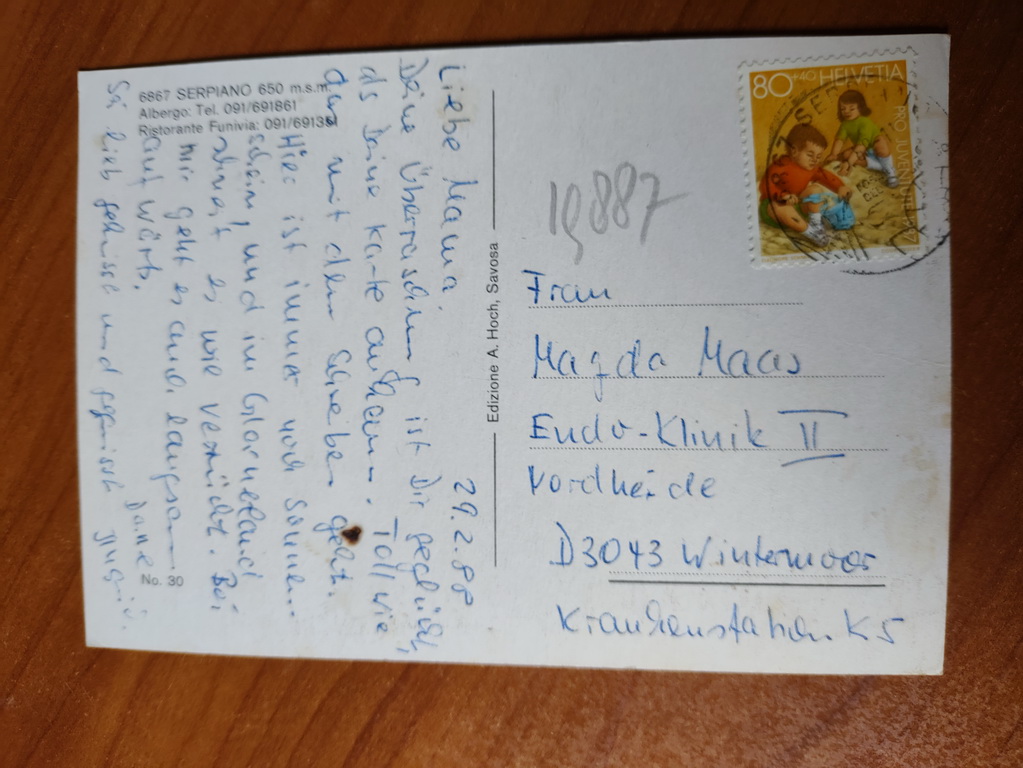 6867 SERPIANO 650 m.s.m.
Albergo: Tel. 091/691861
Ristorante Funivia: 091/691351
29.2.88
Liebe Mama,
Deine Überraschung ist Dir geglückt,
als Deine Karte ankam. Toll wie
gut mit dem Schreiben geht.
Hier ist immer noch Sonnen-
schein, und im Glarnerland
schneit es wie verrückt. Bei
mir geht es auch langsam
aufwärts.
Sei lieb gegrüsst und
Deine
No. 30
Edizione A. Hoch, Savosa
80+40 HELVETIA
PRO JUVENTUTE
SERPIANO
19887
Frau
Magda Maas
Endo-Klinik II
Nordheide
D3043 Wintermoor
Krankenstation K5